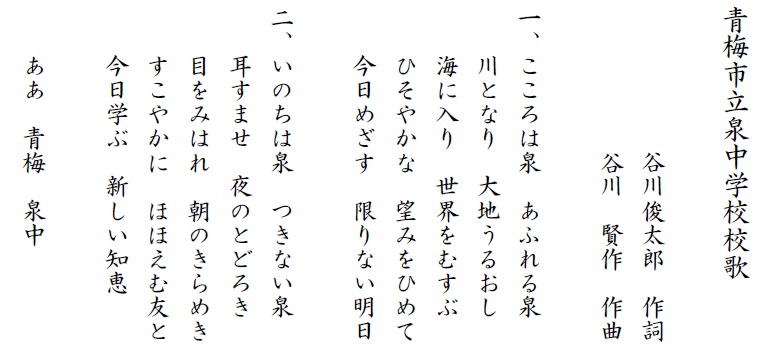 青梅市立泉中学校校歌
谷川俊太郎　作詞
谷川　賢作　作曲
一、こころは泉　あふれる泉
川となり　大地うるおし
海に入り　世界をむすぶ
ひそやかな　望みをひめて
今日めざす　限りない明日
二、いのちは泉　つきない泉
耳すませ　夜のとどろき
目をみはれ　朝のきらめき
すこやかに　ほほえむ友と
今日学ぶ　新しい知恵
ああ　青梅　泉中